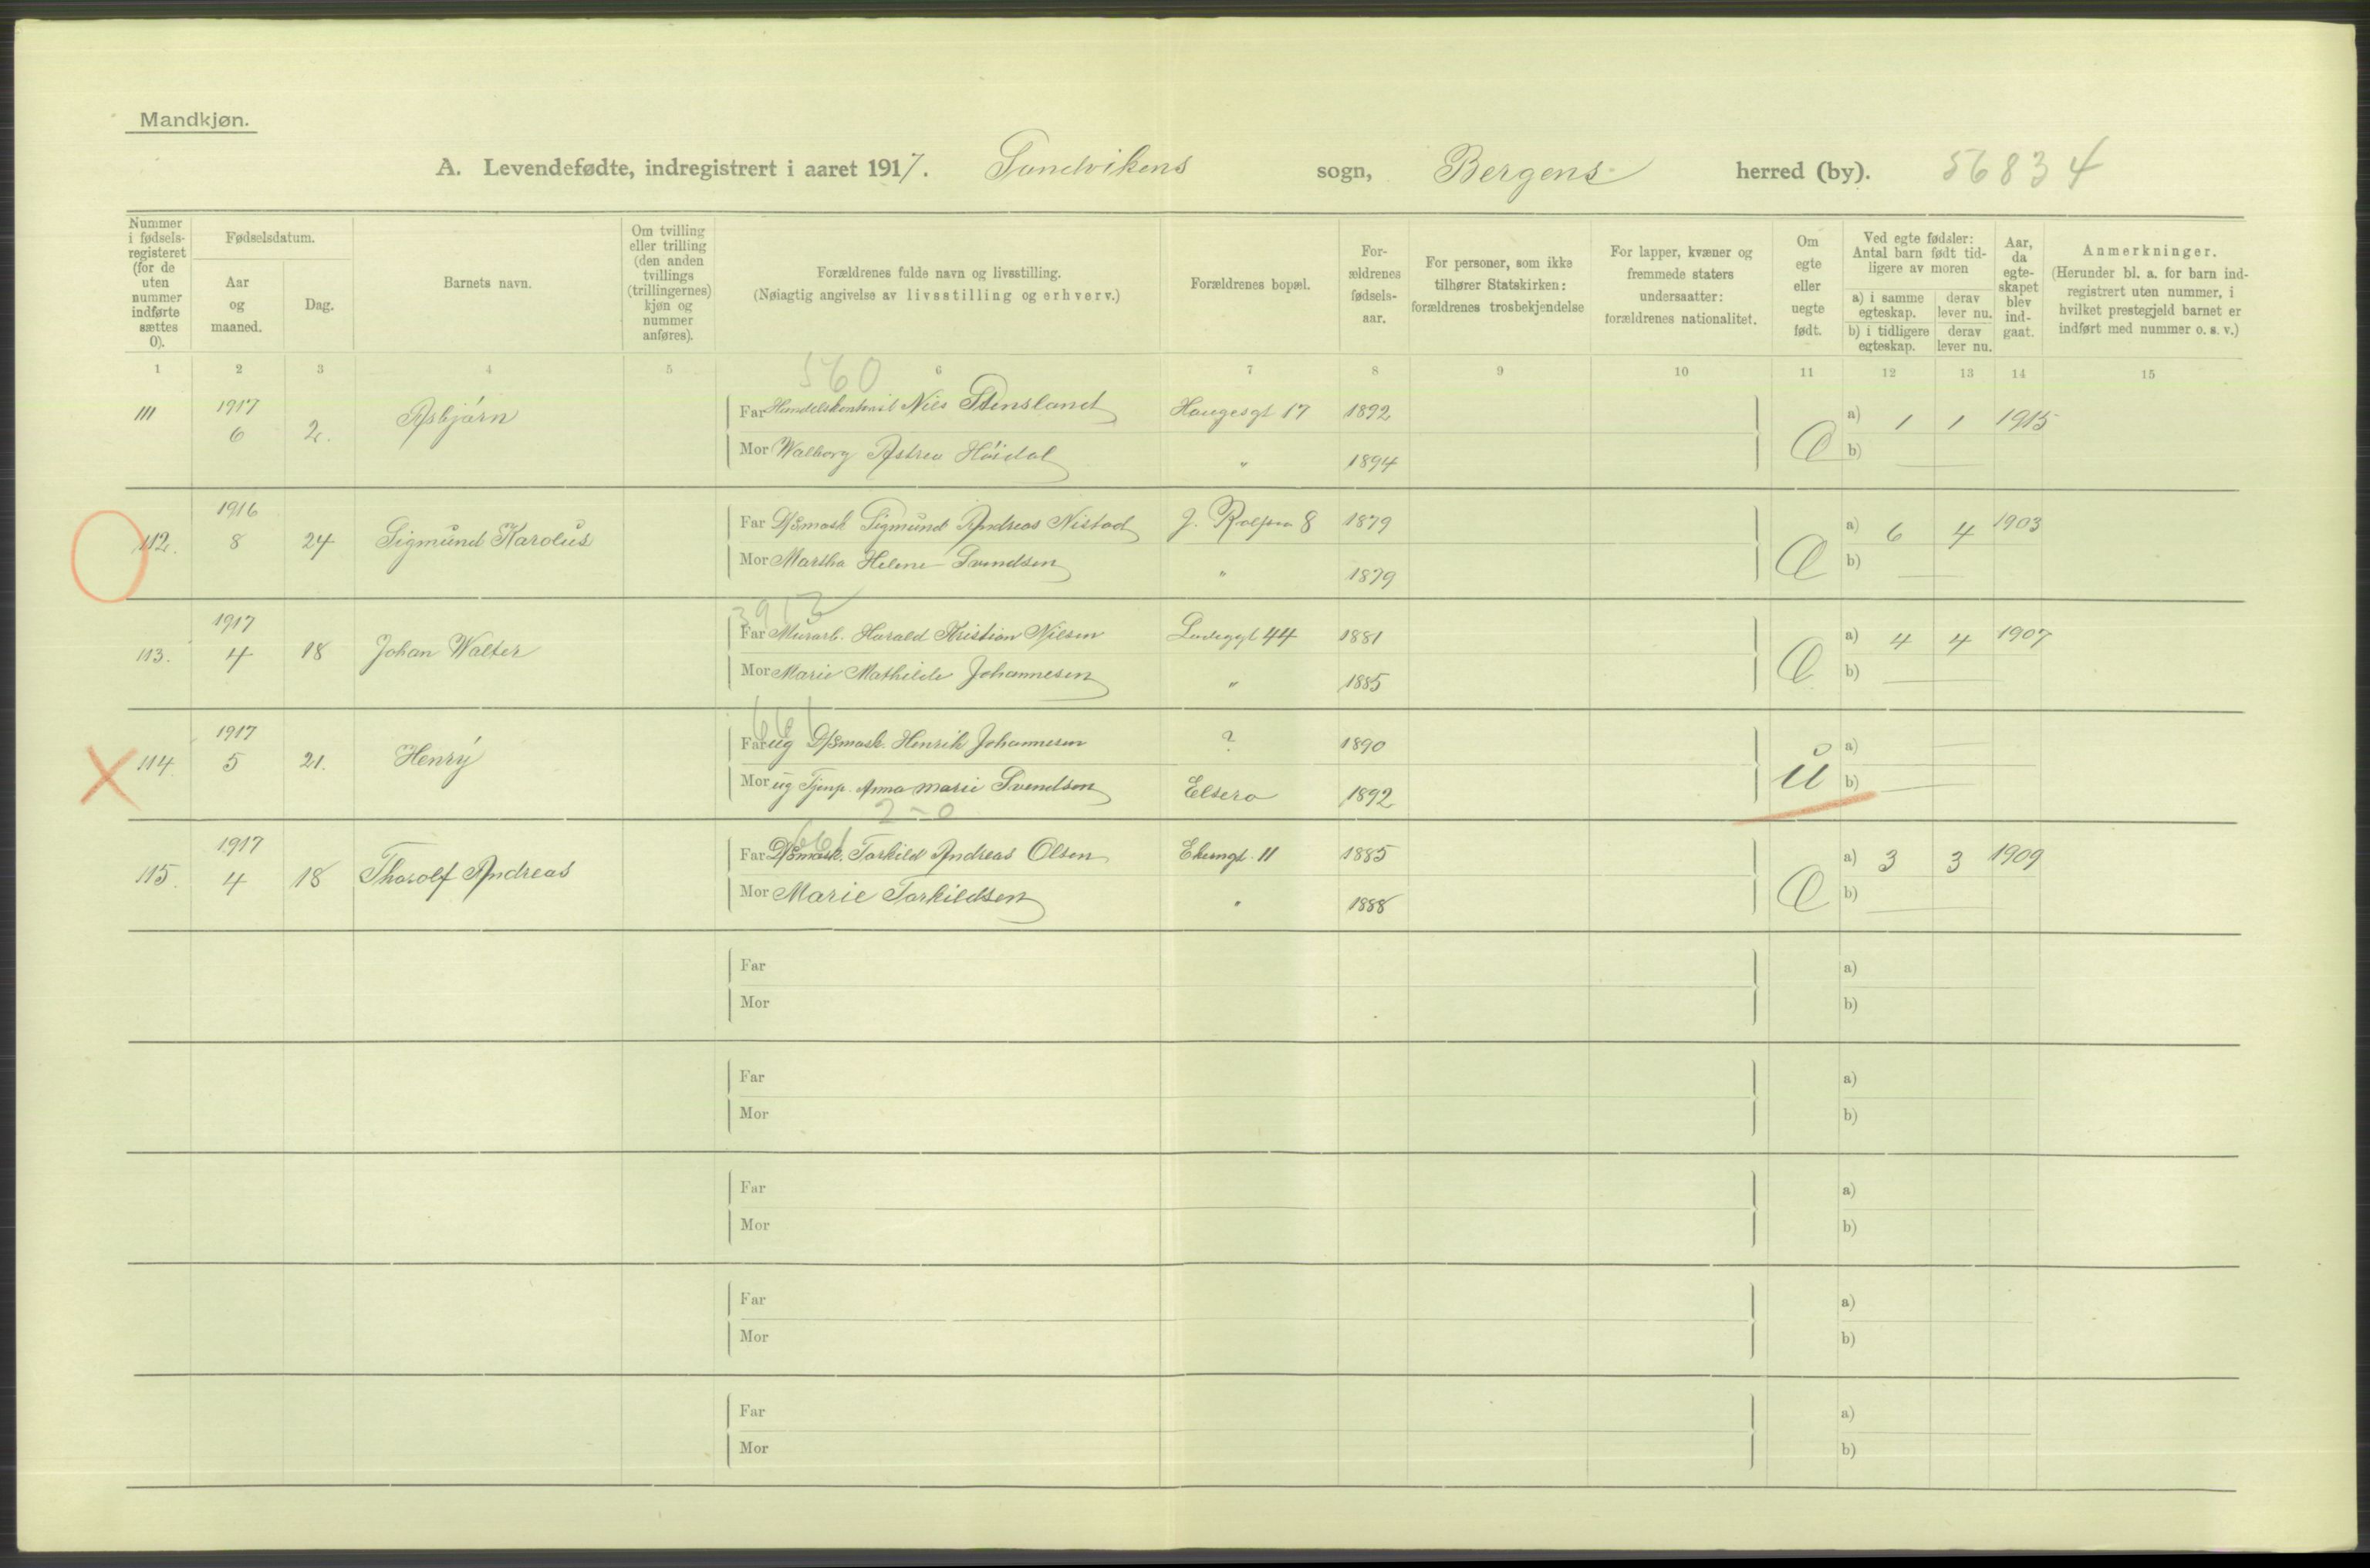 Mandkjøn.
A. Levendefødte, indregistrert i aaret 1917. Sandvikens sogn, Bergens herred (by). 56834
Nummer i fødsels-registeret (for de uten nummer indførte sættes 0).
Fødselsdatum.
Aar og maaned.
Dag.
Barnets navn.
Om tvilling eller trilling (den anden tvillings (trillingernes) kjøn og nummer anføres).
Forældrenes fulde navn og livsstilling.
(Nøiagtig angivelse av livsstilling og erhverv.)
Forældrenes bopæl.
For-ældrenes fødsels-aar.
For personer, som ikke tilhører Statskirken: forældrenes trosbekjendelse
For lapper, kvæner og fremmede staters undersaatter: forældrenes nationalitet.
Om egte eller uegte født.
Ved egte fødsler: Antal barn født tid-ligere av moren
a) i samme egteskap.
derav lever nu.
b) i tidligere egteskap.
derav lever nu.
Aar, da egte-skapet blev ind-gaat.
Anmerkninger.
(Herunder bl. a. for barn ind-registrert uten nummer, i hvilket prestegjeld barnet er indført med nummer o. s. v.)
1 2 3 4 5 6 7 8 9 10 11 12 13 14 15
560
111 1917 6 2. Asbjørn Far Nils Stensland Haugesgt 17 1892 a) 1 1 1915
Mor Walborg Astrea Høidal " 1894 b)
112. 1916 8 24 Sigmund Karolus Far D/Smask Sigmund Andreas Nistad J. Rolfsen 8 1879 a) 6 4 1903
Mor Martha Helene Svendsen " 1879 b)
113. 1917 4 18 Johan Walter Far Murarb. Harald Kristian Nilsen 44 1881 a) 4 4 1907
Mor Marie Mathilde Johannesen " 1885 b)
661
114. 1917 5 21. Henry Far ug D/Smask. Henrik Johannesen ? 1890 u a)
Mor ug Tjenp. Anna Marie Svendsen Elsero 1892 b)
2-0
661
115. 1917 4 18 Thorolf Andreas Far D/Smask. Torkild Andreas Olsen Ekerngt. 11 1885 a) 3 3 1909
Mor Marie Torkildsen " 1888 b)
Far a)
Mor b)
Far a)
Mor b)
Far a)
Mor b)
Far a)
Mor b)
Far a)
Mor b)